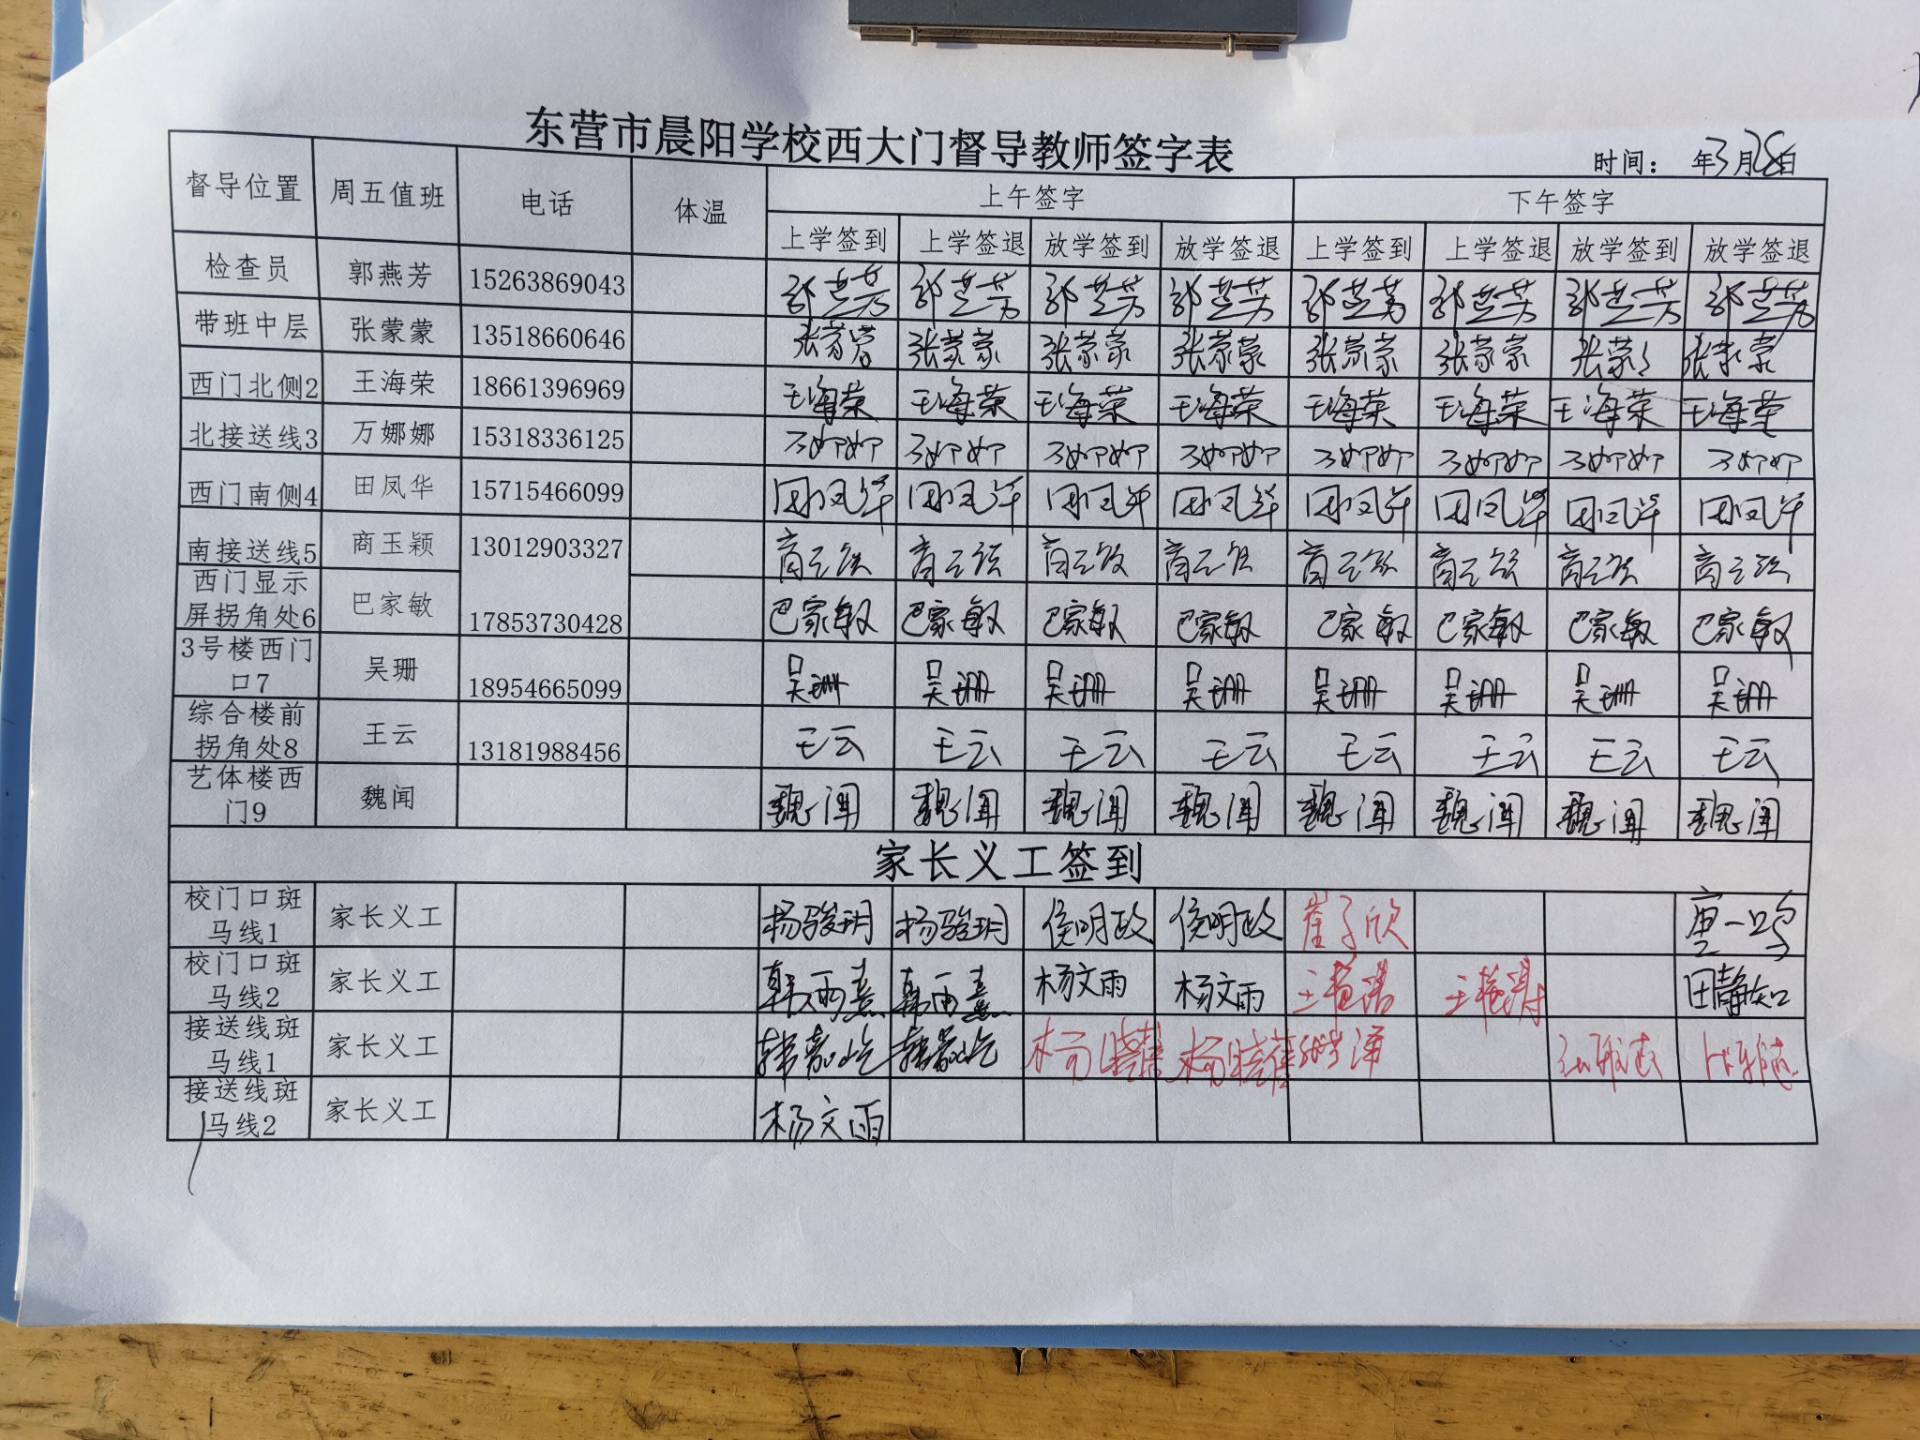 东营市晨阳学校西大门督导教师签字表
时间： 年3月28日
督导位置 周五值班 电话 体温 上午签字 下午签字
上学签到 上学签退 放学签到 放学签退 上学签到 上学签退 放学签到 放学签退
检查员 郭燕芳 15263869043 郭芝芳 郭芝芳 郭芝芳 郭芝芳 郭芝芳 郭芝芳 郭芝芳 郭芝芳
带班中层 张蒙蒙 13518660646 张蒙蒙 张蒙蒙 张蒙蒙 张蒙蒙 张蒙蒙 张蒙蒙 张蒙 张蒙蒙
西门北侧2 王海荣 18661396969 王海荣 王海荣 王海荣 王海荣 王海荣 王海荣 王海荣 王海荣
北接送线3 万娜娜 15318336125 万娜娜 万娜娜 万娜娜 万娜娜 万娜娜 万娜娜 万娜娜 万娜娜
西门南侧4 田凤华 15715466099 田凤华 田凤华 田凤华 田凤华 田凤华 田凤华 田凤华 田凤华
南接送线5 商玉颖 13012903327 商玉颖 商玉颖 商玉颖 商玉颖 商玉颖 商玉颖 商玉颖 商玉颖
西门显示
屏拐角处6 巴家敏 17853730428 巴家敏 巴家敏 巴家敏 巴家敏 巴家敏 巴家敏 巴家敏 巴家敏
3号楼西门
口7 吴珊 18954665099 吴珊 吴珊 吴珊 吴珊 吴珊 吴珊 吴珊 吴珊
综合楼前
拐角处8 王云 13181988456 王云 王云 王云 王云 王云 王云 王云 王云
艺体楼西
门9 魏闻 魏闻 魏闻 魏闻 魏闻 魏闻 魏闻 魏闻 魏闻
家长义工签到
校门口斑
马线1 家长义工 杨骏玥 杨骏玥 侯明政 侯明政 崔子欣 唐一鸣
校门口斑
马线2 家长义工 韩雨熹 韩雨熹 杨文雨 杨文雨 田静知
接送线斑
马线1 家长义工 韩嘉屹 韩嘉屹
接送线斑
马线2 家长义工 杨文雨